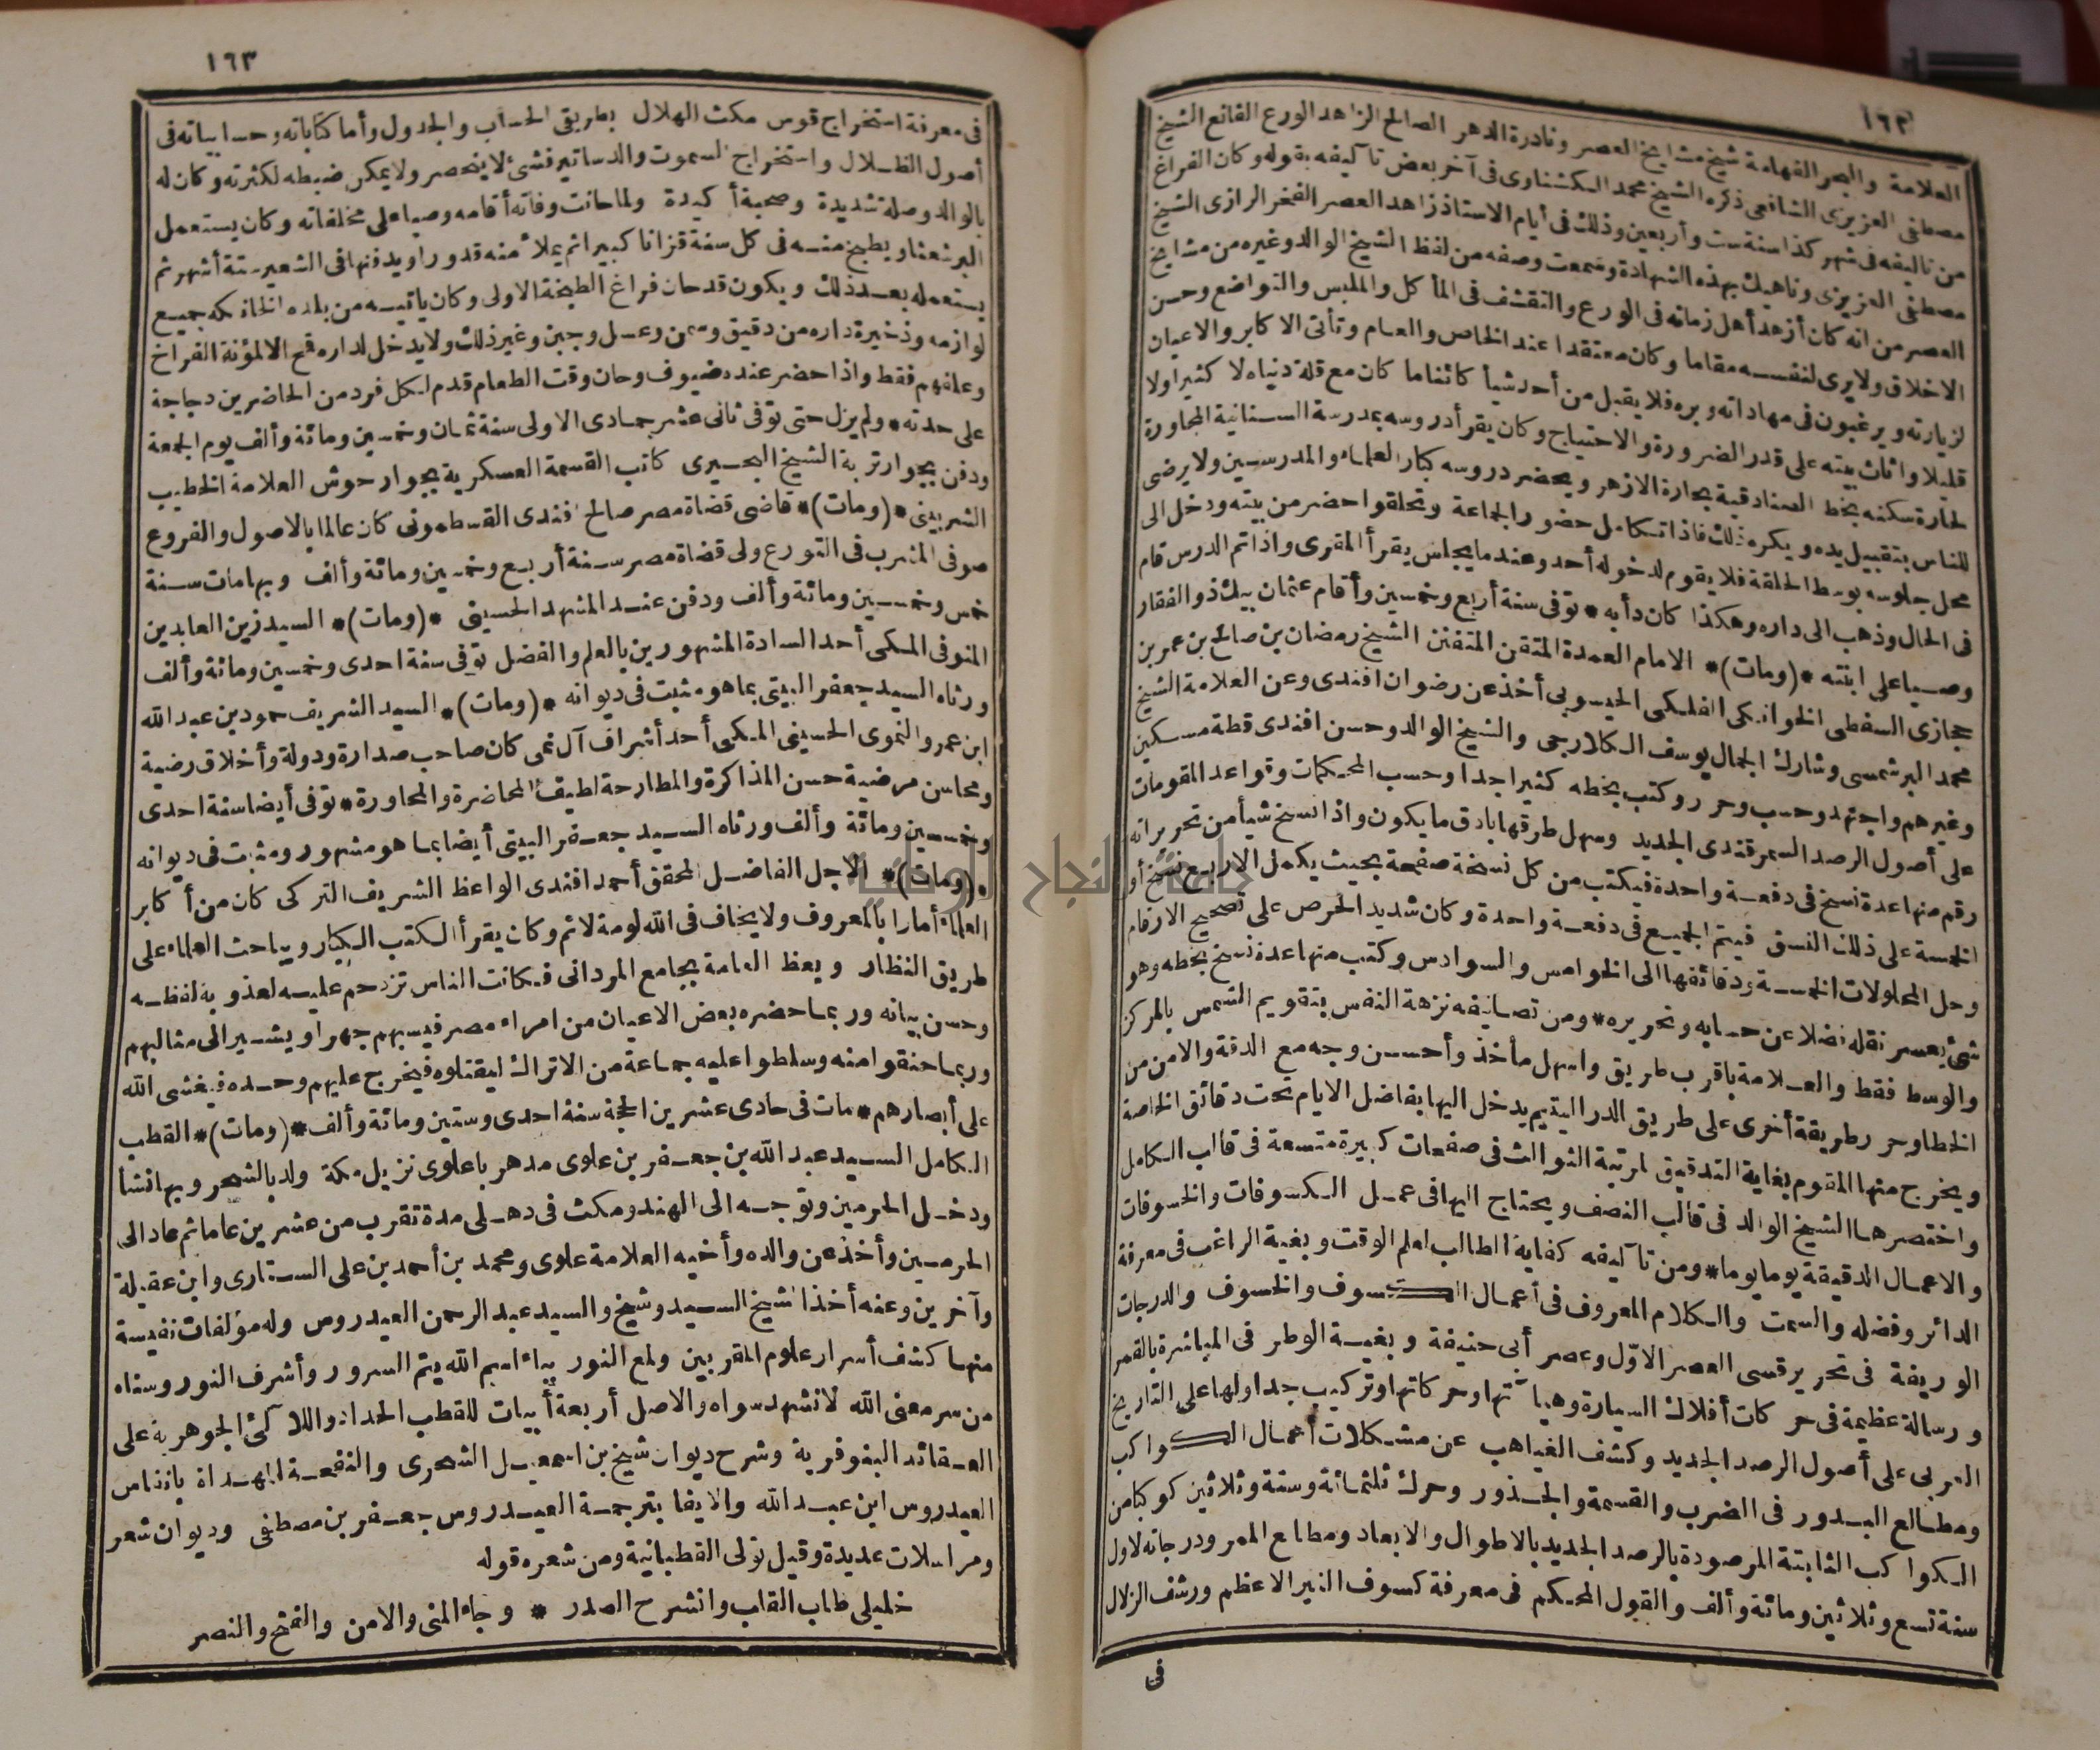 ١٦٢
العلامة والبحر الفهامة شيخ مشايخ العصر ونادرة الدهر الصالح الزاهد الورع القانع الشيخ
مصطفى العزيزى الشافعى ذكره الشيخ محمد الكشناوى فى آخر بعض تآليفه بقوله وكان الفراغ
من تأليفه فى شهر كذا سنة ست وأربعين وذلك فى أيام الاستاذ زاهد العصر الفخر الرازى الشيخ
مصطفى العزيزى وناهيك بهذه الشهادة وسمعت وصفه من لفظ الشيخ الوالد وغيره من مشايخ
العصر من انه كان أزهد أهل زمانه فى الورع والتقشف فى المأكل والملبس والتواضع وحسن
الاخلاق ولا يرى لنفسه مقاما وكان معتقدا عند الخاص والعام وتأتى الاكابر والاعيان
لزيارته ويرغبون فى مهاداته وبره فلا يقبل من أحد شيأ كائنا ما كان مع قلة دنياه لا كثيرا ولا
قليلا واثاث بيته على قدر الضرورة والاحتياج وكان يقرأ دروسه بمدرسة السنانية المجاورة
لحارة سكنه بخط الصنادقية بحارة الازهر ويحضر دروسه كبار العلماء والمدرسين ولا يرضى
للناس بتقبيل يده ويكره ذلك فاذا تكامل حضور الجماعة وتحلقوا حضر من بيته ودخل الى
محل جلوسه بوسط الحلقة فلا يقوم لدخوله أحد وعندما يجلس يقرأ المقرى واذا تم الدرس قام
فى الحال وذهب الى داره وهكذا كان دأبه * توفى سنة أربع وخمسين وأقام عثمان بيك ذو الفقار
وصيا على ابنته *(ومات)* الامام العمدة المتقن المتفنن الشيخ رمضان بن صالح بن عمر بن
حجازى السفطى الخوانكى الفلكى الحيسوبى أخذ عن رضوان افندى وعن العلامة الشيخ
محمد البرشمسى وشارك الجمال يوسف الكلارجى والشيخ الوالد وحسن افندى قطة مسكين
وغيرهم واجتهد وحسب وحرر وكتب بخطه كثيرا جدا وحسب المحكمات وقواعد المقومات
على أصول الرصد السمرقندى الجديد وسهل طرقها بادق ما يكون واذا نسخ شيأ من تحريراته
رقم منها عدة نسخ فى دفعة واحدة فيكتب من كل نسخة صفحة بحيث يكمل الاربع نسخ أو
الخمسة على ذلك النسق فيتم الجميع فى دفعة واحدة وكان شديد الحرص على تصحيح الارقام
وحل المحلولات الخمسة ودقائقها الى الخوامس والسوادس وكتب منها عدة نسخ بخطه وهو
شئ يعسر نقله فضلا عن حسابه وتحريره * ومن تصانيفه نزهة النفس بتقويم الشمس بالمركز
والوسط فقط والعلامة باقرب طريق واسهل مأخذ وأحسن وجه مع الدقة والامن من
الخطا وحرر طريقة أخرى على طريق الدر اليتيم يدخل اليها بفاضل الايام تحت دقائق الخاصة
ويخرج منها المقوم بغاية التدقيق لمرتبة الثوالث فى صفحات كبيرة متسعة فى قالب الكامل
واختصرها الشيخ الوالد فى قالب النصف ويحتاج اليها فى عمل الكسوفات والخسوفات
والاعمال الدقيقة يوما يوما * ومن تآليفه كفاية الطالب لعلم الوقت وبغية الراغب فى معرفة
الدائر وفضله والسمت والكلام المعروف فى أعمال الكسوف والخسوف والدرجات
الوريفة فى تحرير قسى العصر الاوّل وعصر أبى حنيفة وبغية الوطر فى المباشرة بالقمر
ورسالة عظيمة فى حركات أفلاك السيارة وهيآتها وحركاتها وتركيب جداولها على التاريخ
العربى على أصول الرصد الجديد وكشف الغياهب عن مشكلات أعمال الكواكب
ومطالع البدور فى الضرب والقسمة والجذور وحرك ثلثمائة وستة وثلاثين كوكبا من
الكواكب الثابتة المرصودة بالرصد الجديد بالاطوال والابعاد ومطالع الممر ودرجاته لاول
سنة تسع وثلاثين ومائة وألف والقول المحكم فى معرفة كسوف النير الاعظم ورشف الزلال
فى
١٦٣
فى معرفة استخراج قوس مكث الهلال بطريقى الحساب والجدول وأما كتاباته وحساباته فى
أصول الظلال واستخراج السموت والدساتير فشئ لا ينحصر ولا يمكن ضبطه لكثرته وكان له
بالوالد وصلة شديدة وصحبة أكيدة ولما حانت وفاته أقامه وصيا على مخلفاته وكان يستعمل
البرشعثا ويطبخ منه فى كل سنة قزانا كبيرا ثم يملأ منه قدورا ويدفنها فى الشعير ستة أشهر ثم
يستعمله بعد ذلك ويكون قد حان فراغ الطبخة الاولى وكان يأتيه من بلده الخانكه جميع
لوازمه وذخيرة داره من دقيق وسمن وعسل وجبن وغير ذلك ولا يدخل لداره قمح الا لمؤنة الفراخ
وعلفهم فقط واذا حضر عنده ضيوف وحان وقت الطعام قدم لكل فرد من الحاضرين دجاجة
على حدته * ولم يزل حتى توفى ثانى عشر جمادى الاولى سنة ثمان وخمسين ومائة وألف يوم الجمعة
ودفن بجوار تربة الشيخ البحيرى كاتب القسمة العسكرية بجوار حوش العلامة الخطيب
الشربينى *(ومات)* قاضى قضاة مصر صالح افندى القسطمونى كان عالما بالاصول والفروع
صوفى المشرب فى التورع ولى قضاة مصر سنة أربع وخمسين ومائة وألف وبها مات سنة
خمس وخمسين ومائة وألف ودفن عند المشهد الحسينى *(ومات)* السيد زين العابدين
المنوفى المكى أحد السادة المشهورين بالعلم والفضل توفى سنة احدى وخمسين ومائة وألف
ورثاه السيد جعفر البيتى بما هو مثبت فى ديوانه *(ومات)* السيد الشريف حمود بن عبد الله
ابن عمرو النموى الحسينى المكى أحد أشراف آل نمى كان صاحب صدارة ودولة وأخلاق رضية
ومحاسن مرضية حسن المذاكرة والمطارحة لطيف المحاضرة والمحاورة * توفى أيضا سنة احدى
وخمسين ومائة وألف ورثاه السيد جعفر البيتى أيضا بما هو مشهور ومثبت فى ديوانه
*(ومات)* الاجل الفاضل المحقق أحمد افندى الواعظ الشريف التركى كان من أكابر
العلماء أمارا بالمعروف ولا يخاف فى الله لومة لائم وكان يقرأ الكتب الكبار ويباحث العلماء على
طريق النظار ويعظ العامة بجامع المردانى فكانت الناس تزدحم عليه لعذوبة لفظه
وحسن بيانه وربما حضره بعض الاعيان من امراء مصر فيسبهم جهرا ويشير الى مثالبهم
وربما حنقوا منه وسلطوا عليه جماعة من الاتراك ليقتلوه فيخرج عليهم وحده فيغشى الله
على أبصارهم * مات فى حادى عشرين الحجة سنة احدى وستين ومائة وألف *(ومات)* القطب
الكامل السيد عبد الله بن جعفر بن علوى مدهر باعلوى نزيل مكة ولد بالشحر وبها نشأ
ودخل الحرمين وتوجه الى الهند ومكث فى دهلى مدة تقرب من عشرين عاما ثم عاد الى
الحرمين وأخذ عن والده وأخيه العلامة علوى ومحمد بن أحمد بن على الستارى وابن عقيلة
وآخرين وعنه أخذ الشيخ السيد وشيخ والسيد عبد الرحمن العيدروس وله مؤلفات نفيسة
منها كشف أسرار علوم المقربين ولمع النور بباء اسم الله يتم السرور وأشرف النور وسناه
من سر معنى الله لا نشهد سواه والاصل أربعة أبيات للقطب الحداد واللآلئ الجوهرية على
العقائد البنوفرية وشرح ديوان شيخ بن اسمعيل الشحرى والنفحة المهداة بانفاس
العيدروس ابن عبد الله والايفا بترجمة العيدروس جعفر بن مصطفى وديوان شعر
ومراسلات عديدة وقيل تولى القطبانية ومن شعره قوله
خليلى طاب القلب وانشرح الصدر * وجاء المنى والامن والفتح والنصر
جامعة النجاح الوطنية